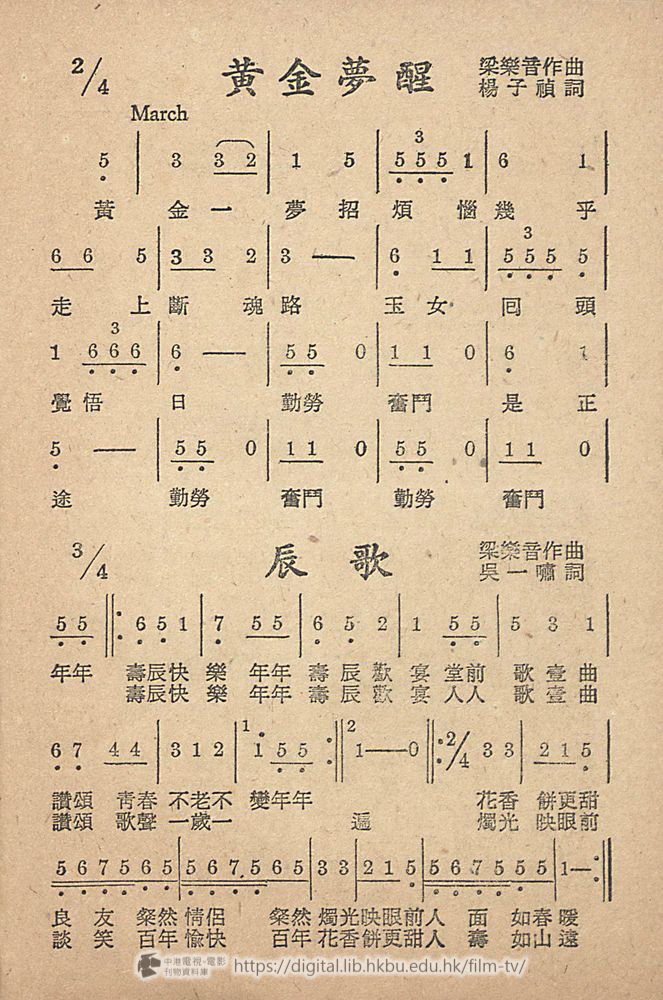 2/4 黃金夢醒 梁樂音作曲
楊子禎詞
March
5 | 3 3 2 | 1 5 | 5 5 5 1 | 6 1 |
3
黃 金 一 夢 招 煩 惱 幾 乎
6 6 5 | 3 3 2 | 3 — | 6 1 1 | 5 5 5 5 |
3
走 上 斷 魂 路 玉 女 囘 頭
1 6 6 6 | 6 — | 5 5 0 | 1 1 0 | 6 1 |
3
覺 悟 日 勤勞 奮鬥 是 正
5 — | 5 5 0 | 1 1 0 | 5 5 0 | 1 1 0 |
途 勤勞 奮鬥 勤勞 奮鬥
3/4 辰歌 梁樂音作曲
吳一嘯詞
5 5 ‖: 6 5 1 | 7 5 5 | 6 5 2 | 1 5 5 | 5 3 1 |
年年 壽辰快 樂 年年 壽 辰 歡 宴 堂前 歌 壹 曲
壽辰快 樂 年年 壽 辰 歡 宴 人人 歌 壹 曲
6 7 4 4 | 3 1 2 | 1. 1 5 5 :‖ 2 1 — 0 ‖: 2/4 3 3 | 2 1 5 |
讚頌 靑春 不老不 變年年 花香 餅更甜
讚頌 歌聲 一歲一 遍 燭光 映眼前
5 6 7 5 6 5 | 5 6 7 5 6 5 | 3 3 | 2 1 5 | 5 6 7 5 5 5 | 1 — :‖
良 友 粲然 情侶 粲然 燭光映眼前人 面 如春暖
談 笑 百年 愉快 百年 花香餅更甜人 壽 如山遠
中港電視·電影
刊物資料庫
https://digital.lib.hkbu.edu.hk/film-tv/